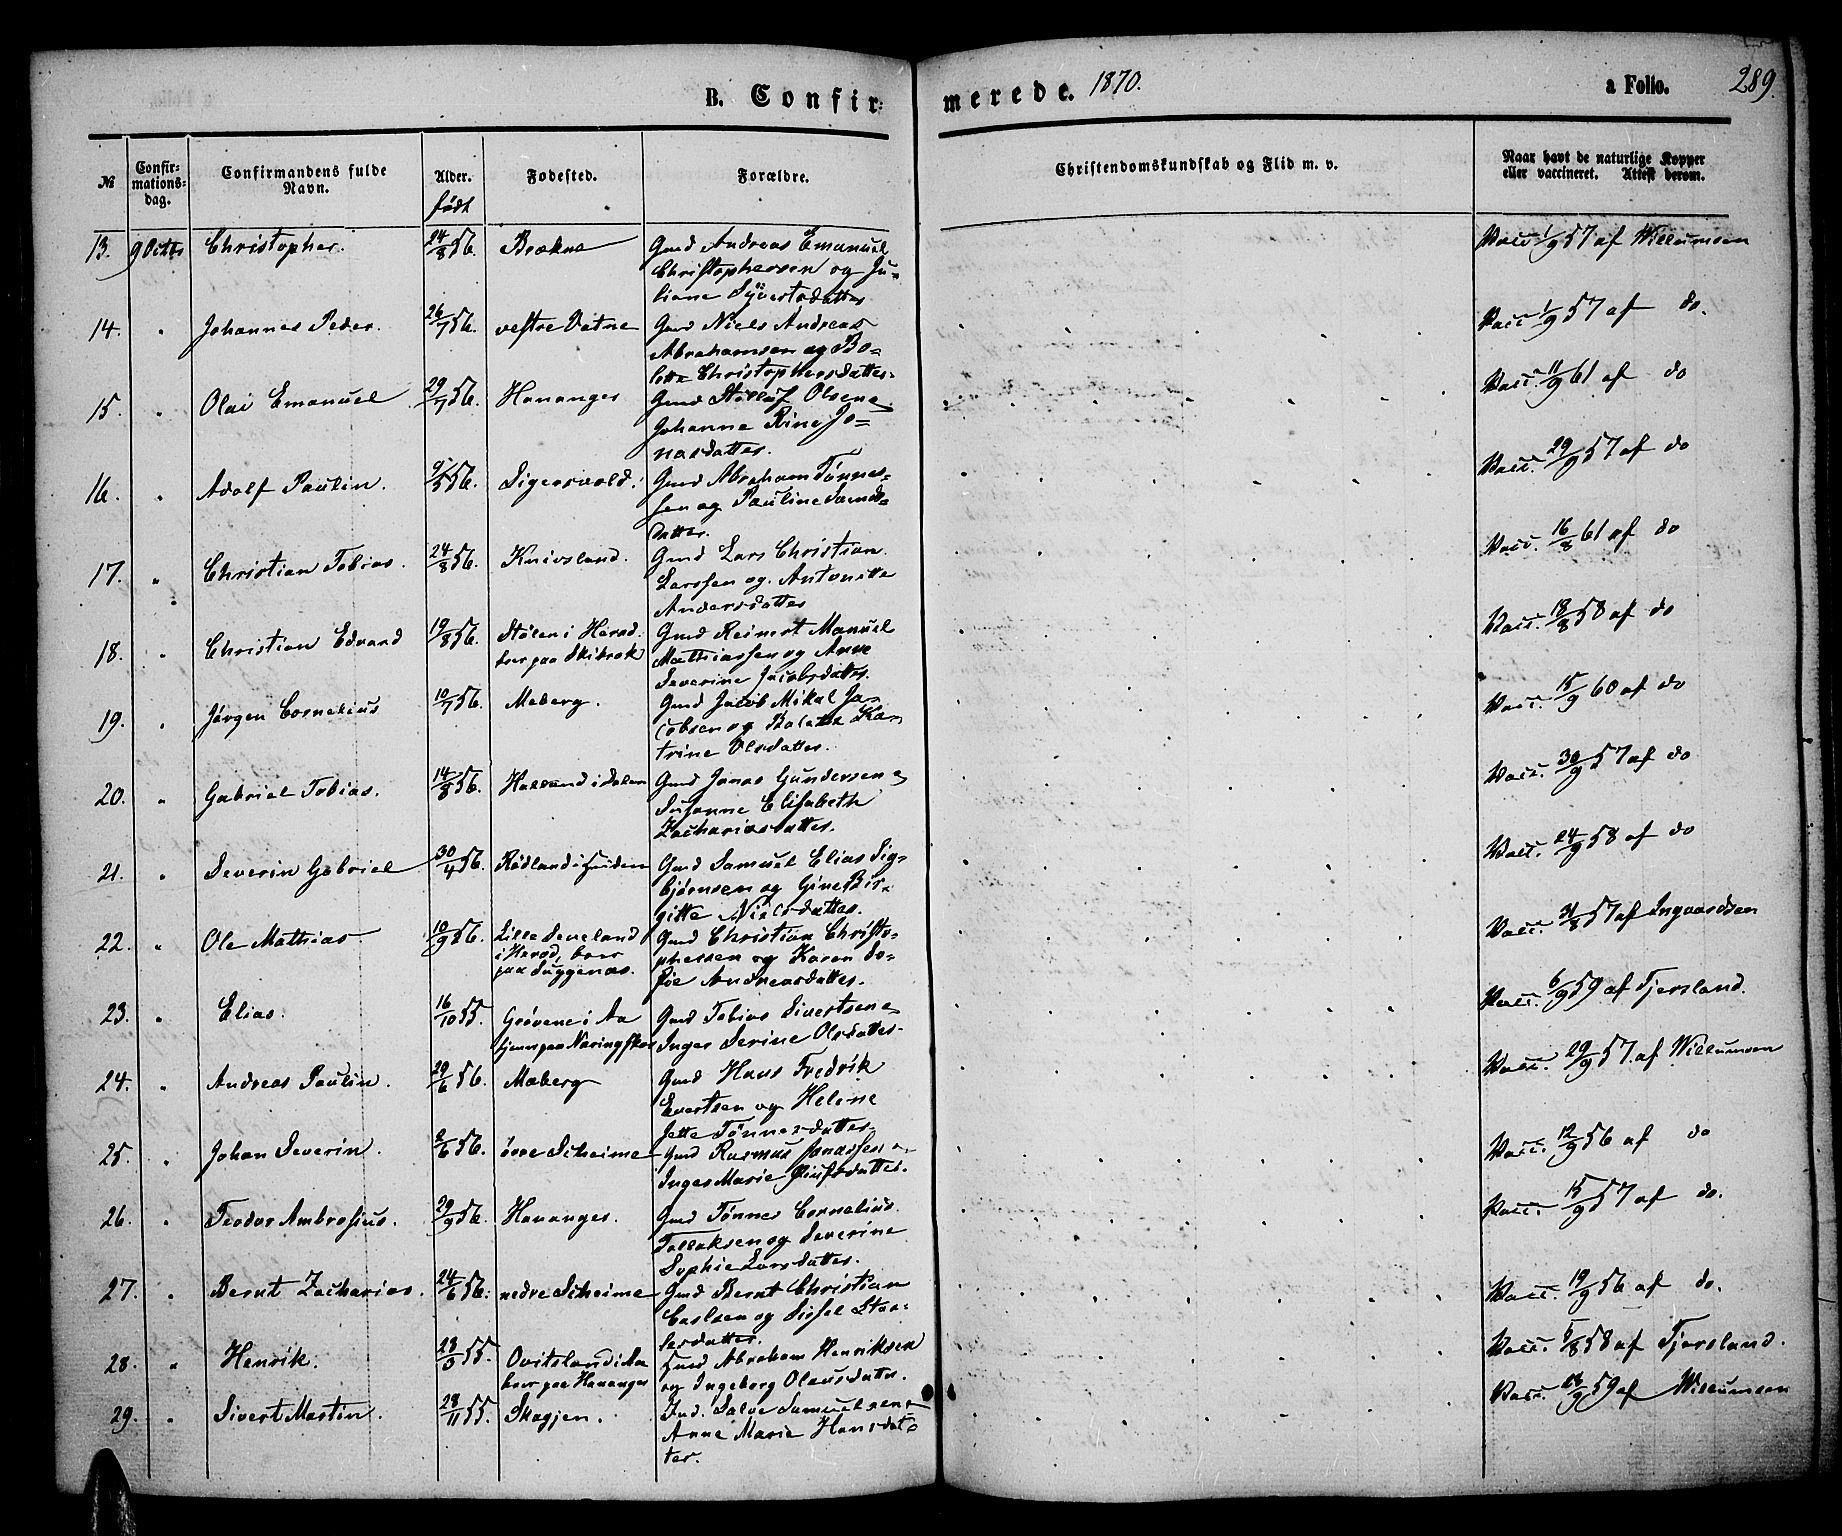 B. Confir-
merede. 1870.
a Folio. 289.
№
Confir-
mations-
dag.
Confirmandens fulde
Navn.
Alder.
født
Fodested.
Forældre.
Christendomskundskab og Flid m. v.
Naar havt de naturlige Kopper
eller vaccineret. Attest derom.
13. 9 Octbr Christopher. 24/8 56. Brækne Gmd Andreas Emanuel
Christophersen og Ju-
liane Syvertsdatter
Vacc 1/9 57 af Willumsen
14. " Johannes Peder. 26/7 56. vestre Vatne Gmd Niels Andreas
Abrahamsen og Bo-
lette Christophersdatter.
Vacc 1/9 57 af do.
15. " Olai Emanuel 29/7 56. Hananger Gmd Stølluf Olsen
Johanne Rine Jo-
nasdatter.
Vacc. 11/9 61 af do
16. " Adolf Paulin. 9/5 56. Sigersvold. Gmd Abraham Tønnes-
sen og Pauline Sams-
datter.
Vacc. 29/9 57 af do
17. " Christian Tobias. 24/8 56. Knivsland. Gmd Lars Christian
Larssen og Antonette
Andersdatter
Vacc. 16/8 61 af do
18. " Christian Edvard 19/8 56. Stølen i Herad. Gmd Reinert Manuel
boer paa Skibrok Mathiassen og Anne
Severine Jacobsdatter.
Vacc. 18/8 58 af do
19. " Jørgen Cornelius 10/7 56. Meberg. Gmd Jacob Mikal Ja-
cobsen og Bolette Ka-
trine Olsdatter.
Vacc 15/9 60 af do
20. " Gabriel Tobias. 14/8 56. Haesand i dalen Gmd Jonas Gundersen o
Susanne Elisabeth
Zachariasdatter.
Vacc. 30/9 57 af do
21. " Severin Gabriel 30/4 56. Rødland i Spinden Gmd Samuel Elias Sig-
bjørnsen og Gine Bir-
gitte Nielsdatter.
Vacc. 24/9 58 af do
22. " Ole Mathias 10/9 56. Lille Seveland Gmd Christian Christo-
i Herad, boer phersen og Karen So-
paa Duggenas. fie Andreasdatter.
Vacc. 31/8 57 af Ingvardsen
23. " Elias. 16/10 55. Grøvene i Aa Gmd Tobias Sivertsen
tjener paa Næringskov Inger Serine Olsdatter.
Vacc. 6/9 59 af Tjersland.
24. " Andreas Paulin. 29/6 56. Meberg Gmd Hans Fredrik
Evertsen og Heline
Jette Tønnesdatter.
Vacc. 29/9 57. af Willumsen
25. " Johan Severin. 2/6 56. øvre Scheime Gmd Rasmus Jonassen o
Inger Marie Olufsdatter.
Vacc. 12/9 56 af do
26. " Teodor Ambrosius. 29/9 56. Hananger. Gmd Tønnes Cornelius
Tollaksen og Severine
Sophie Larsdatter.
Vacc. 15/9 57 af do.
27. " Bernt Zacharias. 24/6 56. nedre Scheime Gmd Bernt Christian
Carlsen og Sissel Staa-
lesdatter.
Vacc. 19/9 56 af do.
28. " Henrik. 23/3 55. Ovitsland i Aa Gmd Abraham Henriksen
boer paa Hananger og Ingeborg Olausdatter.
Vacc. 5/8 58 af Tjersland.
29. " Sivert Martin. 28/11 55. Skagjen. Ind. Salve Samuelsen o
Anne Marie Hansdat-
ter.
Vacc. 9 59 af Willumsen